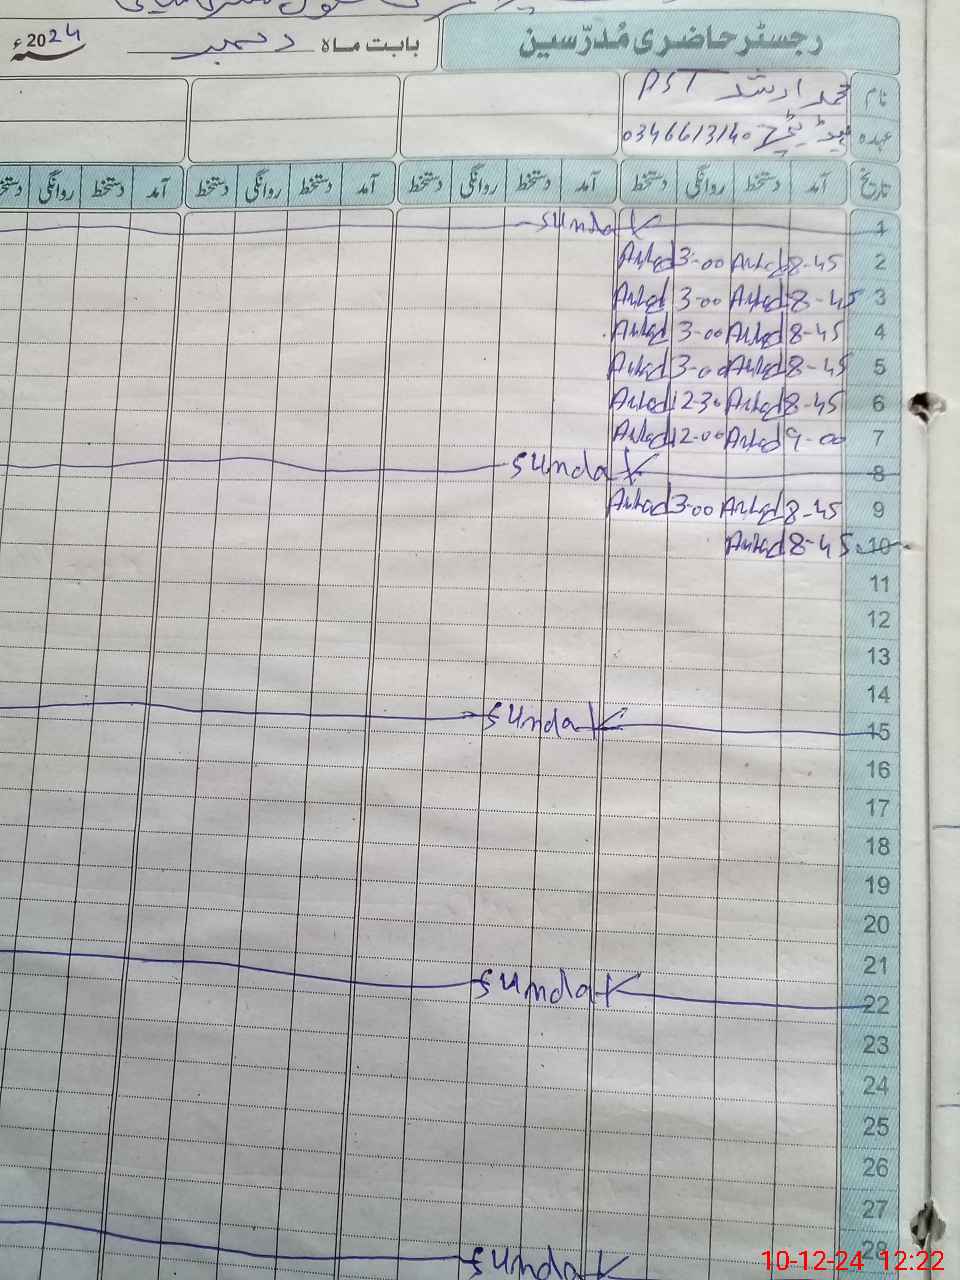 رجسٹر حاضری مُدرّسین
بابت ماہ دسمبر 2024ء
نام محمد ارشد PST
عہدہ ہیڈ ٹیچر 0346613140
تاریخ آمد دستخط روانگی دستخط آمد دستخط روانگی دستخط آمد دستخط روانگی دستخط آمد دستخط روانگی دستخط
1 Sunday
2 8-45 Arshad 3-00 Arshad
3 8-45 Arshad 3-00 Arshad
4 8-45 Arshad 3-00 Arshad
5 8-45 Arshad 3-00 Arshad
6 8-45 Arshad 12-30 Arshad
7 9-00 Arshad 12-00 Arshad
8 Sunday
9 8-45 Arshad 3-00 Arshad
10 8-45 Arshad
11
12
13
14
15 Sunday
16
17
18
19
20
21
22 Sunday
23
24
25
26
27
28
Sunday
10-12-24 12:22